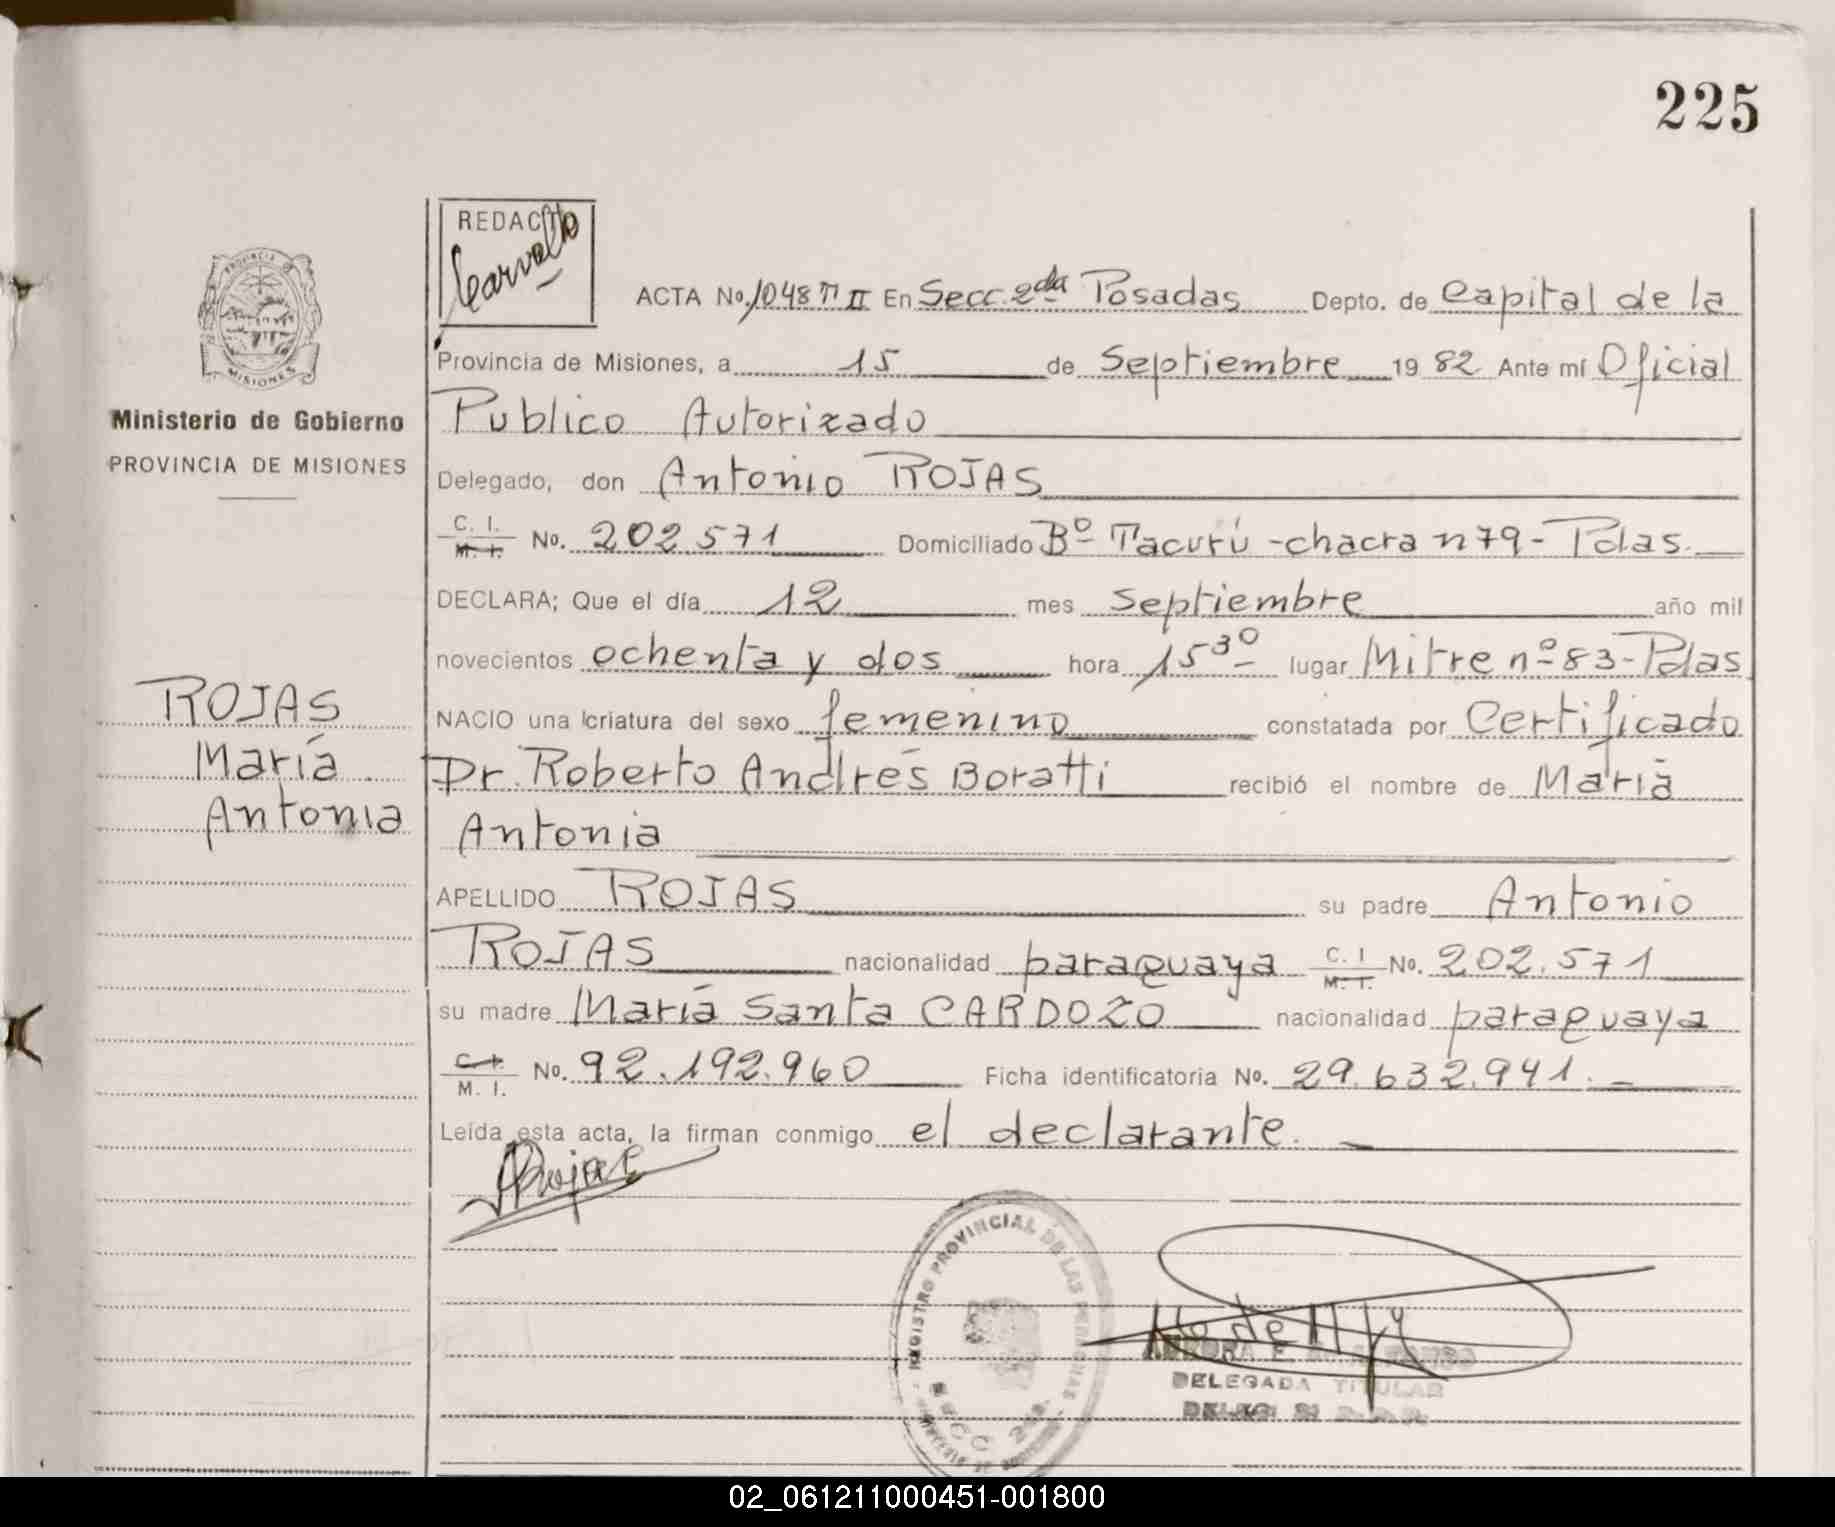 225
REDACTO
Carvallo
PROVINCIA D
MISIONES
Ministerio de Gobierno
PROVINCIA DE MISIONES
ROJAS
María
Antonia
ACTA No. 1048 T II En Secc. 2da Posadas Depto. de Capital de la
Provincia de Misiones, a 15 de Septiembre 19 82 Ante mí Oficial
Publico Autorizado
Delegado, don Antonio ROJAS
C. I. M. I. No. 202.571 Domiciliado Bº Tacurú - chacra n 79 - Pdas.
DECLARA; Que el día 12 mes Septiembre año mil
novecientos ochenta y dos hora 15 30 lugar Mitre nº 83 - Pdas
NACIO una criatura del sexo femenino constatada por Certificado
Dr. Roberto Andrés Boratti recibió el nombre de María
Antonia
APELLIDO ROJAS su padre Antonio
ROJAS nacionalidad paraguaya C. I M. I. No. 202.571
su madre María Santa CARDOZO nacionalidad paraguaya
C. I. M. I. No. 92.192.960 Ficha identificatoria No. 29.632.941.
Leída esta acta, la firman conmigo el declarante.
ARojas
REGISTRO PROVINCIAL DE LAS PERSONAS
SECC 2da.
DELEGADA TITULAR
02_061211000451-001800